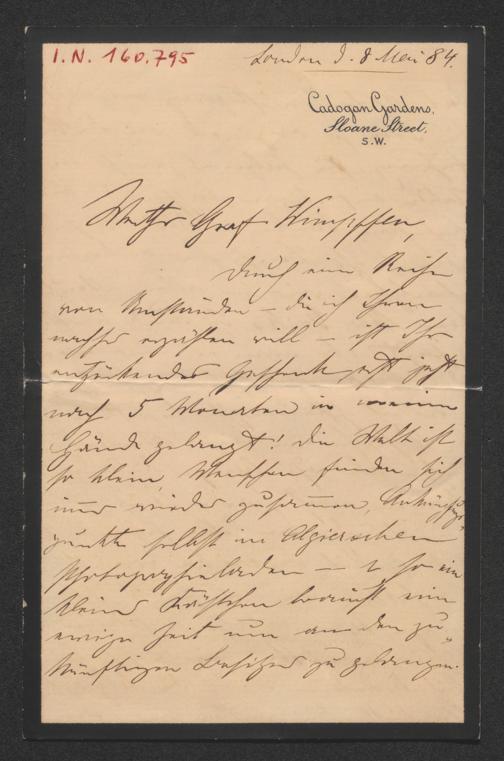 I.N. 160.795
London d. 8 Mai 84.
Cadogan Gardens,
Sloane Street,
S.W.
Werther Graf Wimpffen,
durch eine Reihe
von Umständen – die ich Ihnen
nachher erzählen will – ist Ihr
entzückendes Geschenk erst jetzt
nach 5 Monaten in meine
Hände gelangt! Die Welt ist
so klein, Menschen finden sich
immer wieder zusammen, Anknüpfungs-
punkte selbst im Algierschen
Photographieladen – u so ein
kleines Kästchen braucht eine
ewige Zeit um an den zu-
künftigen Besitzer zu gelangen.